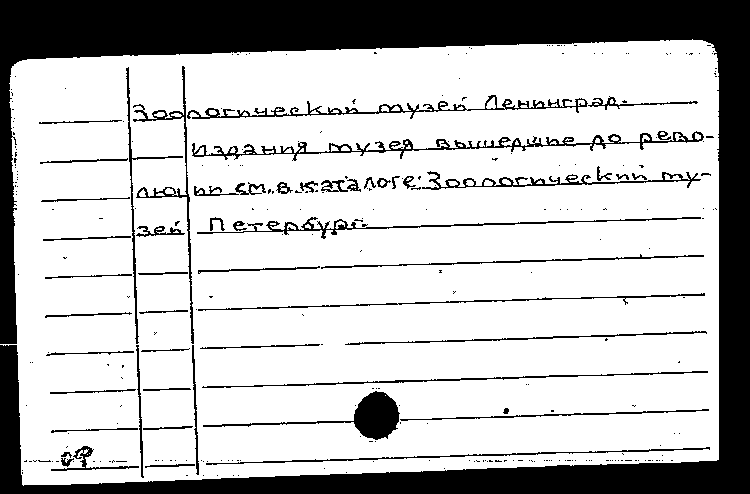 Зоологический музей. Ленинград.
Издания музея вышедшие до рево-
люции см. в каталоге: Зоологический му-
зей Петербург.
ОФ